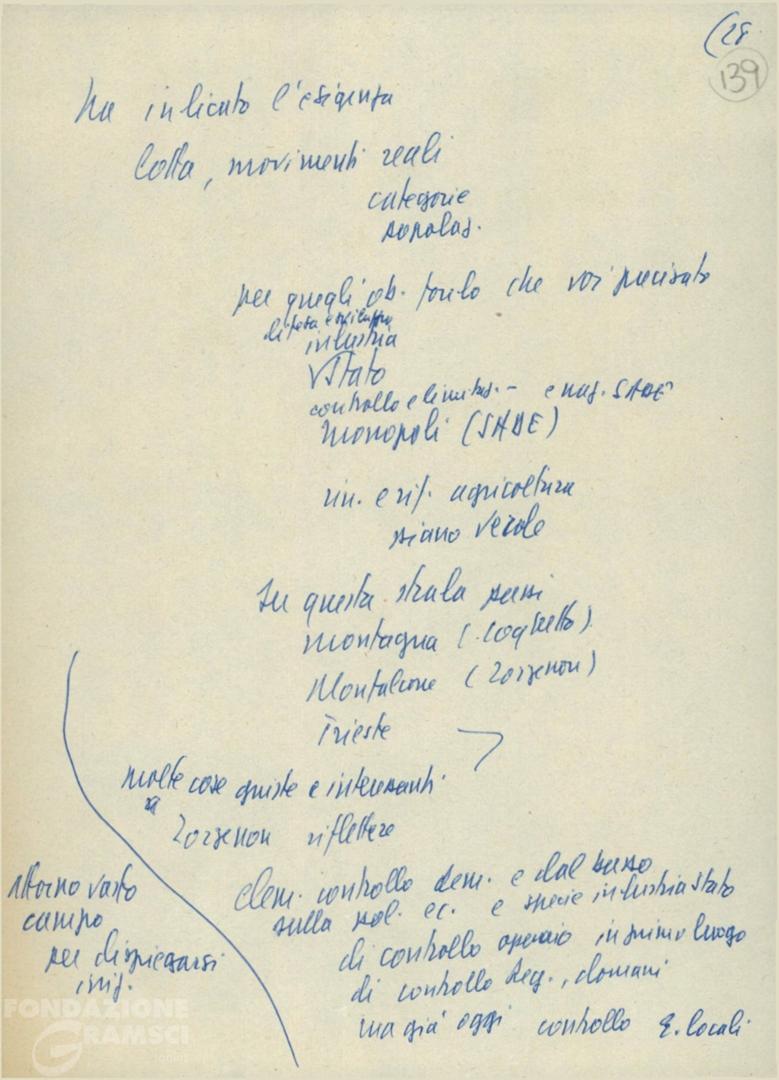 (28
139
ha indicato l'esigenza
lotta, movimenti reali
categorie
popolaz.
per quegli ob. fondo che voi precisato
difesa e sviluppo
industria
Stato
controllo e limitaz. - e naz. SADE
Monopoli (SADE)
rin. e rif. agricoltura
piano verde
Su questa strada passi
montagna (
Monfalcone (Zorzenon)
Trieste
molte cose giuste e interessanti
Zorzenon riflettere
elem. controllo dem. e dal basso
sulla pol. ec. e specie industria Stato
di controllo operaio in primo luogo
di controllo Reg., domani
ma già oggi controllo E. locali
attorno vasto
campo
per dispiegarsi
iniz.
FONDAZIONE
GRAMSCI